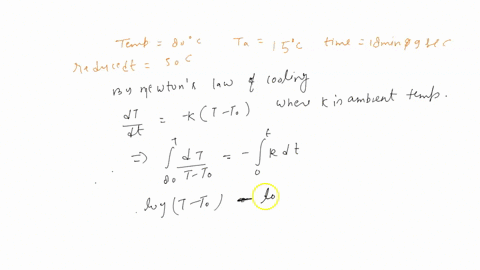 Temp = 80°C Ta = 15°C time = 18min 
reduced t = 50C
By newton's law of cooling
dT/dt = -k(T-T₀) where k is ambient temp.
⇒ ∫₈₀ᵀ dT/T-T₀ = -∫₀ᵗ k dt
log (T-T₀) - lo